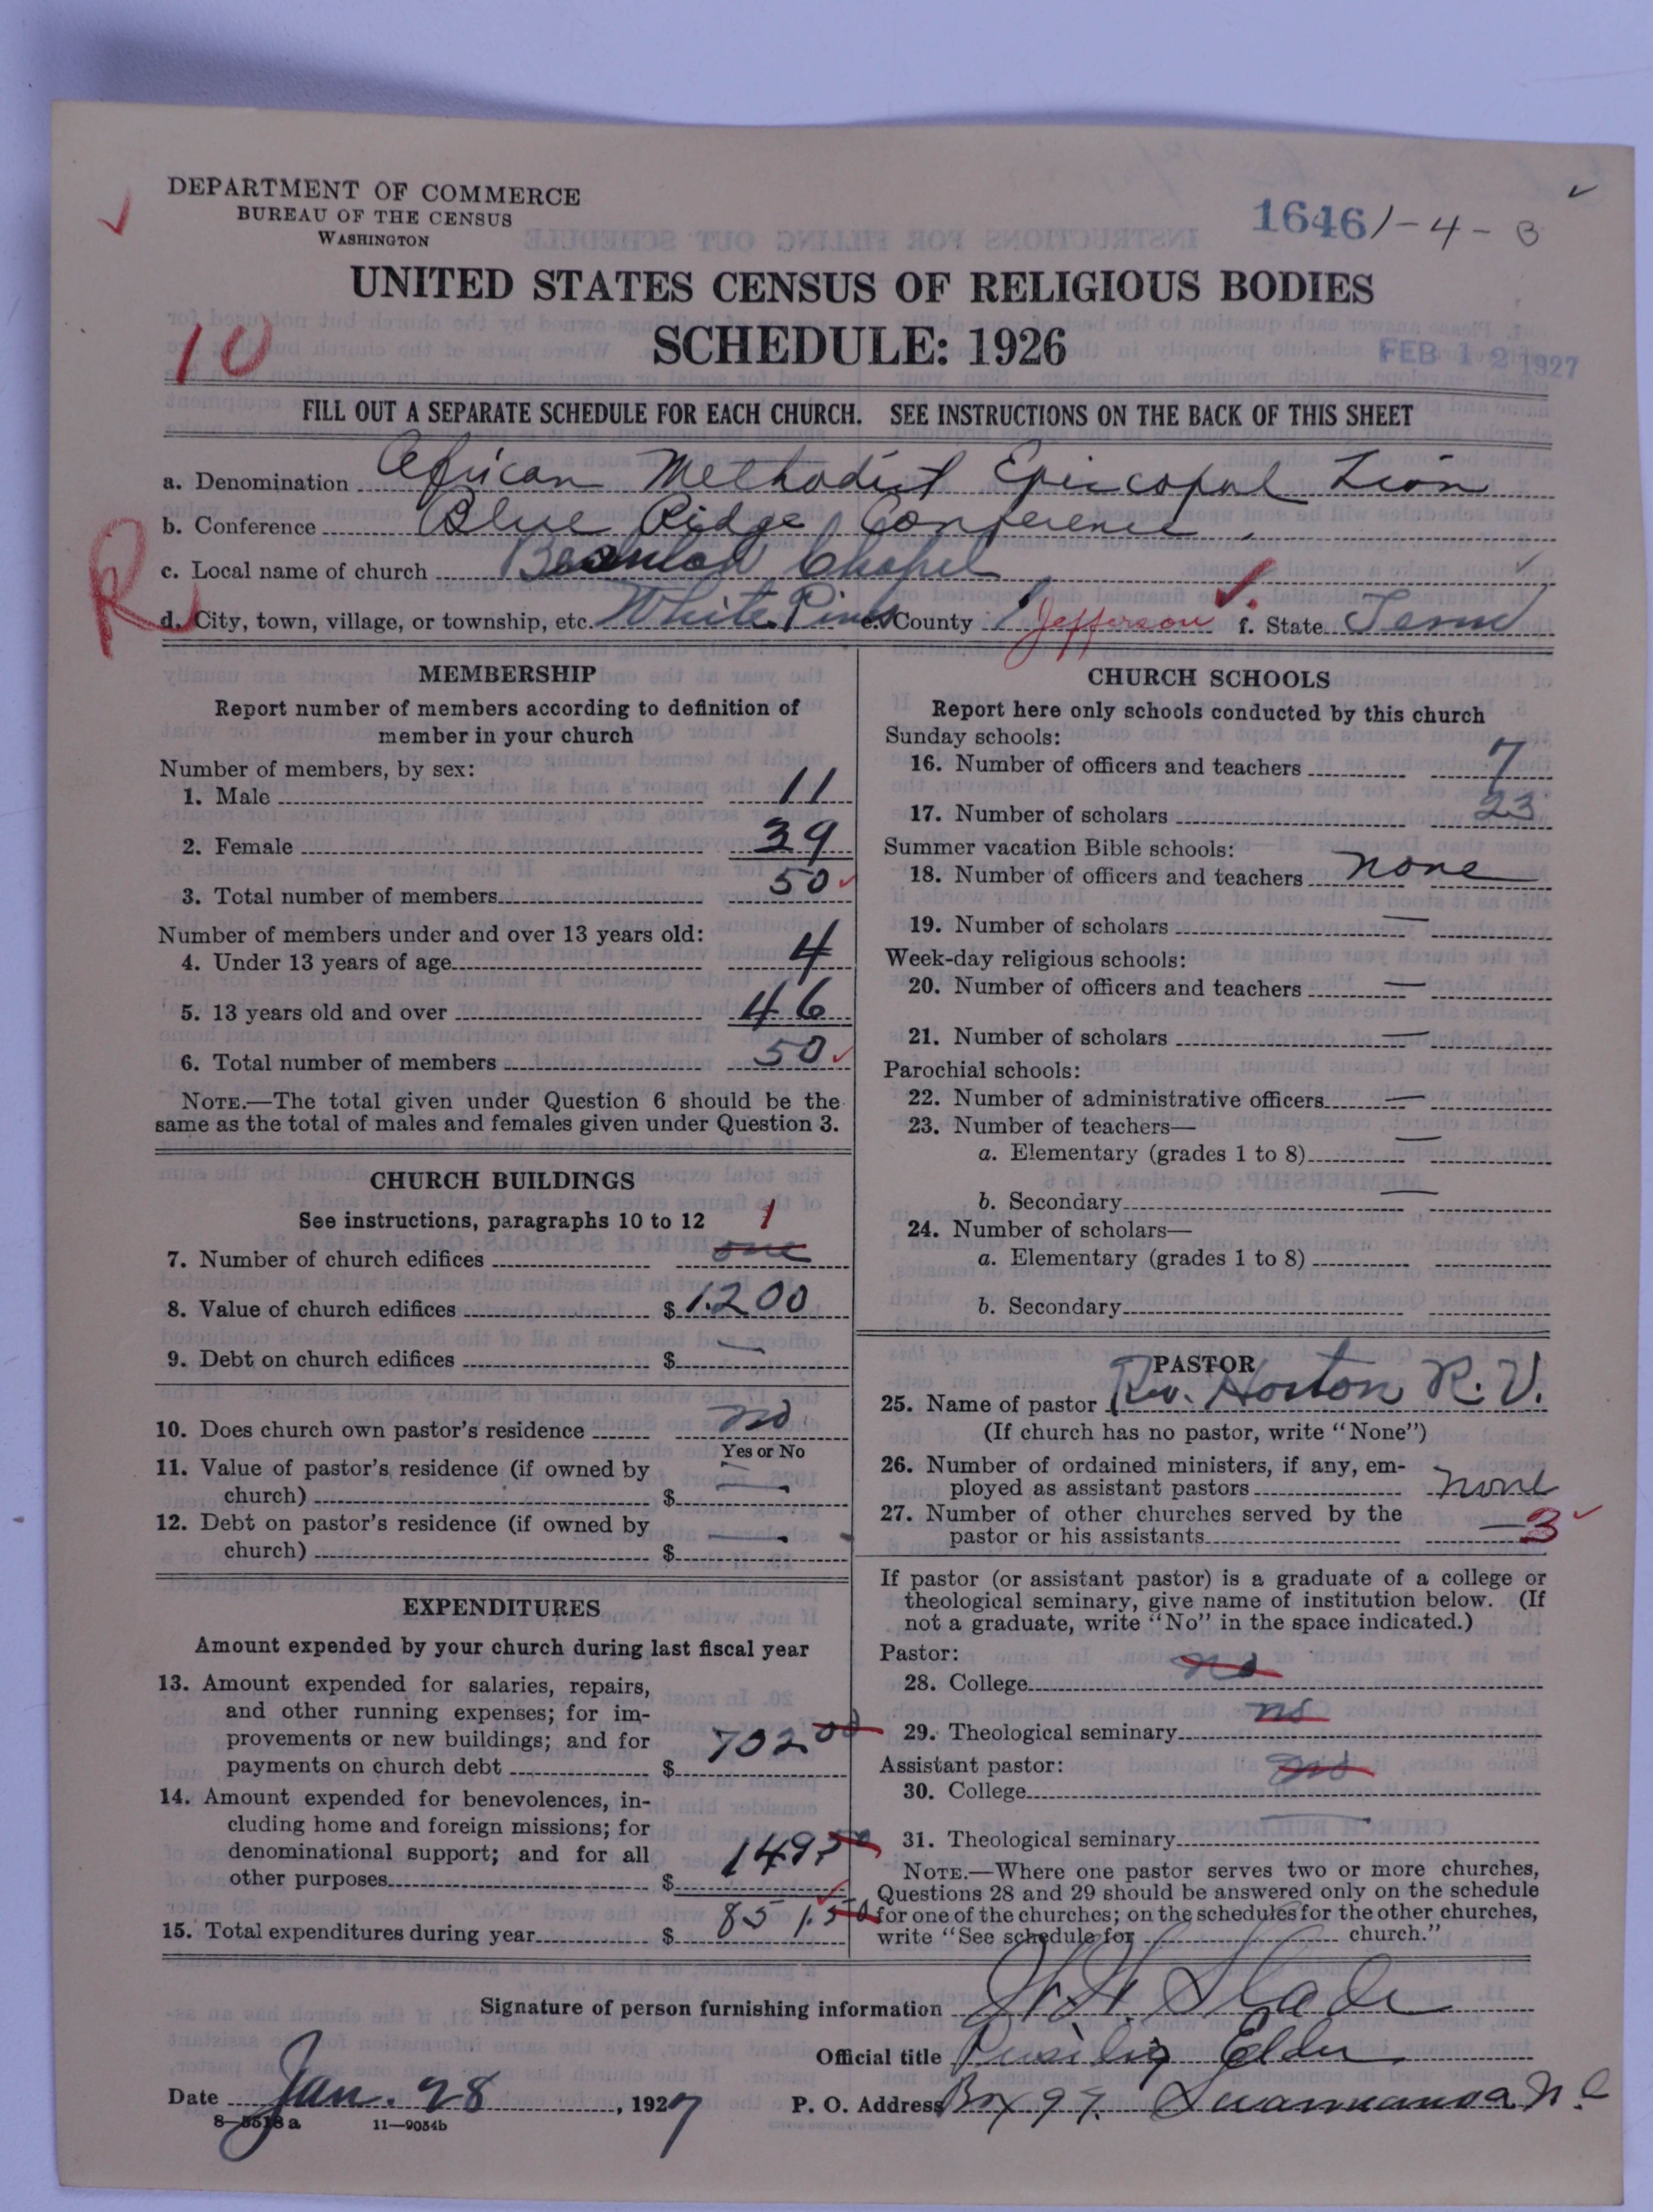 DEPARTMENT OF COMMERCE
BUREAU OF THE CENSUS
WASHINGTON
16461-4-B
UNITED STATES CENSUS OF RELIGIOUS BODIES
SCHEDULE: 1926
10
FEB 12 1927
FILL OUT A SEPARATE SCHEDULE FOR EACH CHURCH. SEE INSTRUCTIONS ON THE BACK OF THIS SHEET
a. Denomination African Methodist Episcopal Zion
b. Conference Blue Ridge Conference
c. Local name of church Chapel
R
d. City, town, village, or township, etc. White Pines e. County Jefferson f. State Tenn
MEMBERSHIP
Report number of members according to definition of
member in your church
Number of members, by sex:
1. Male 11
2. Female 39
3. Total number of members 50
Number of members under and over 13 years old:
4. Under 13 years of age 4
5. 13 years old and over 46
6. Total number of members 50
NOTE.—The total given under Question 6 should be the
same as the total of males and females given under Question 3.
CHURCH BUILDINGS
See instructions, paragraphs 10 to 12 1
7. Number of church edifices one
8. Value of church edifices $ 1200
9. Debt on church edifices $ —
10. Does church own pastor's residence no
Yes or No
11. Value of pastor's residence (if owned by
church) $ —
12. Debt on pastor's residence (if owned by
church) $ —
EXPENDITURES
Amount expended by your church during last fiscal year
13. Amount expended for salaries, repairs,
and other running expenses; for im-
provements or new buildings; and for
payments on church debt $ 702 00
14. Amount expended for benevolences, in-
cluding home and foreign missions; for
denominational support; and for all
other purposes $ 149.50
15. Total expenditures during year $ 851.50
CHURCH SCHOOLS
Report here only schools conducted by this church
Sunday schools:
16. Number of officers and teachers 7
17. Number of scholars 23
Summer vacation Bible schools:
18. Number of officers and teachers none
19. Number of scholars —
Week-day religious schools:
20. Number of officers and teachers —
21. Number of scholars —
Parochial schools:
22. Number of administrative officers —
23. Number of teachers—
a. Elementary (grades 1 to 8) —
b. Secondary —
24. Number of scholars—
a. Elementary (grades 1 to 8)
b. Secondary
PASTOR
25. Name of pastor Rev. Horton R. V.
(If church has no pastor, write "None")
26. Number of ordained ministers, if any, em-
ployed as assistant pastors none
27. Number of other churches served by the
pastor or his assistants —3
If pastor (or assistant pastor) is a graduate of a college or
theological seminary, give name of institution below. (If
not a graduate, write "No" in the space indicated.)
Pastor:
28. College no
29. Theological seminary no
Assistant pastor:
30. College no
31. Theological seminary —
NOTE.—Where one pastor serves two or more churches,
Questions 28 and 29 should be answered only on the schedule
for one of the churches; on the schedules for the other churches,
write "See schedule for church."
Signature of person furnishing information Slade
Official title Presiding Elder
Date Jan. 28, 1927 P. O. Address Box 97. Swannanoa N.C
8—5518a 11—9054b